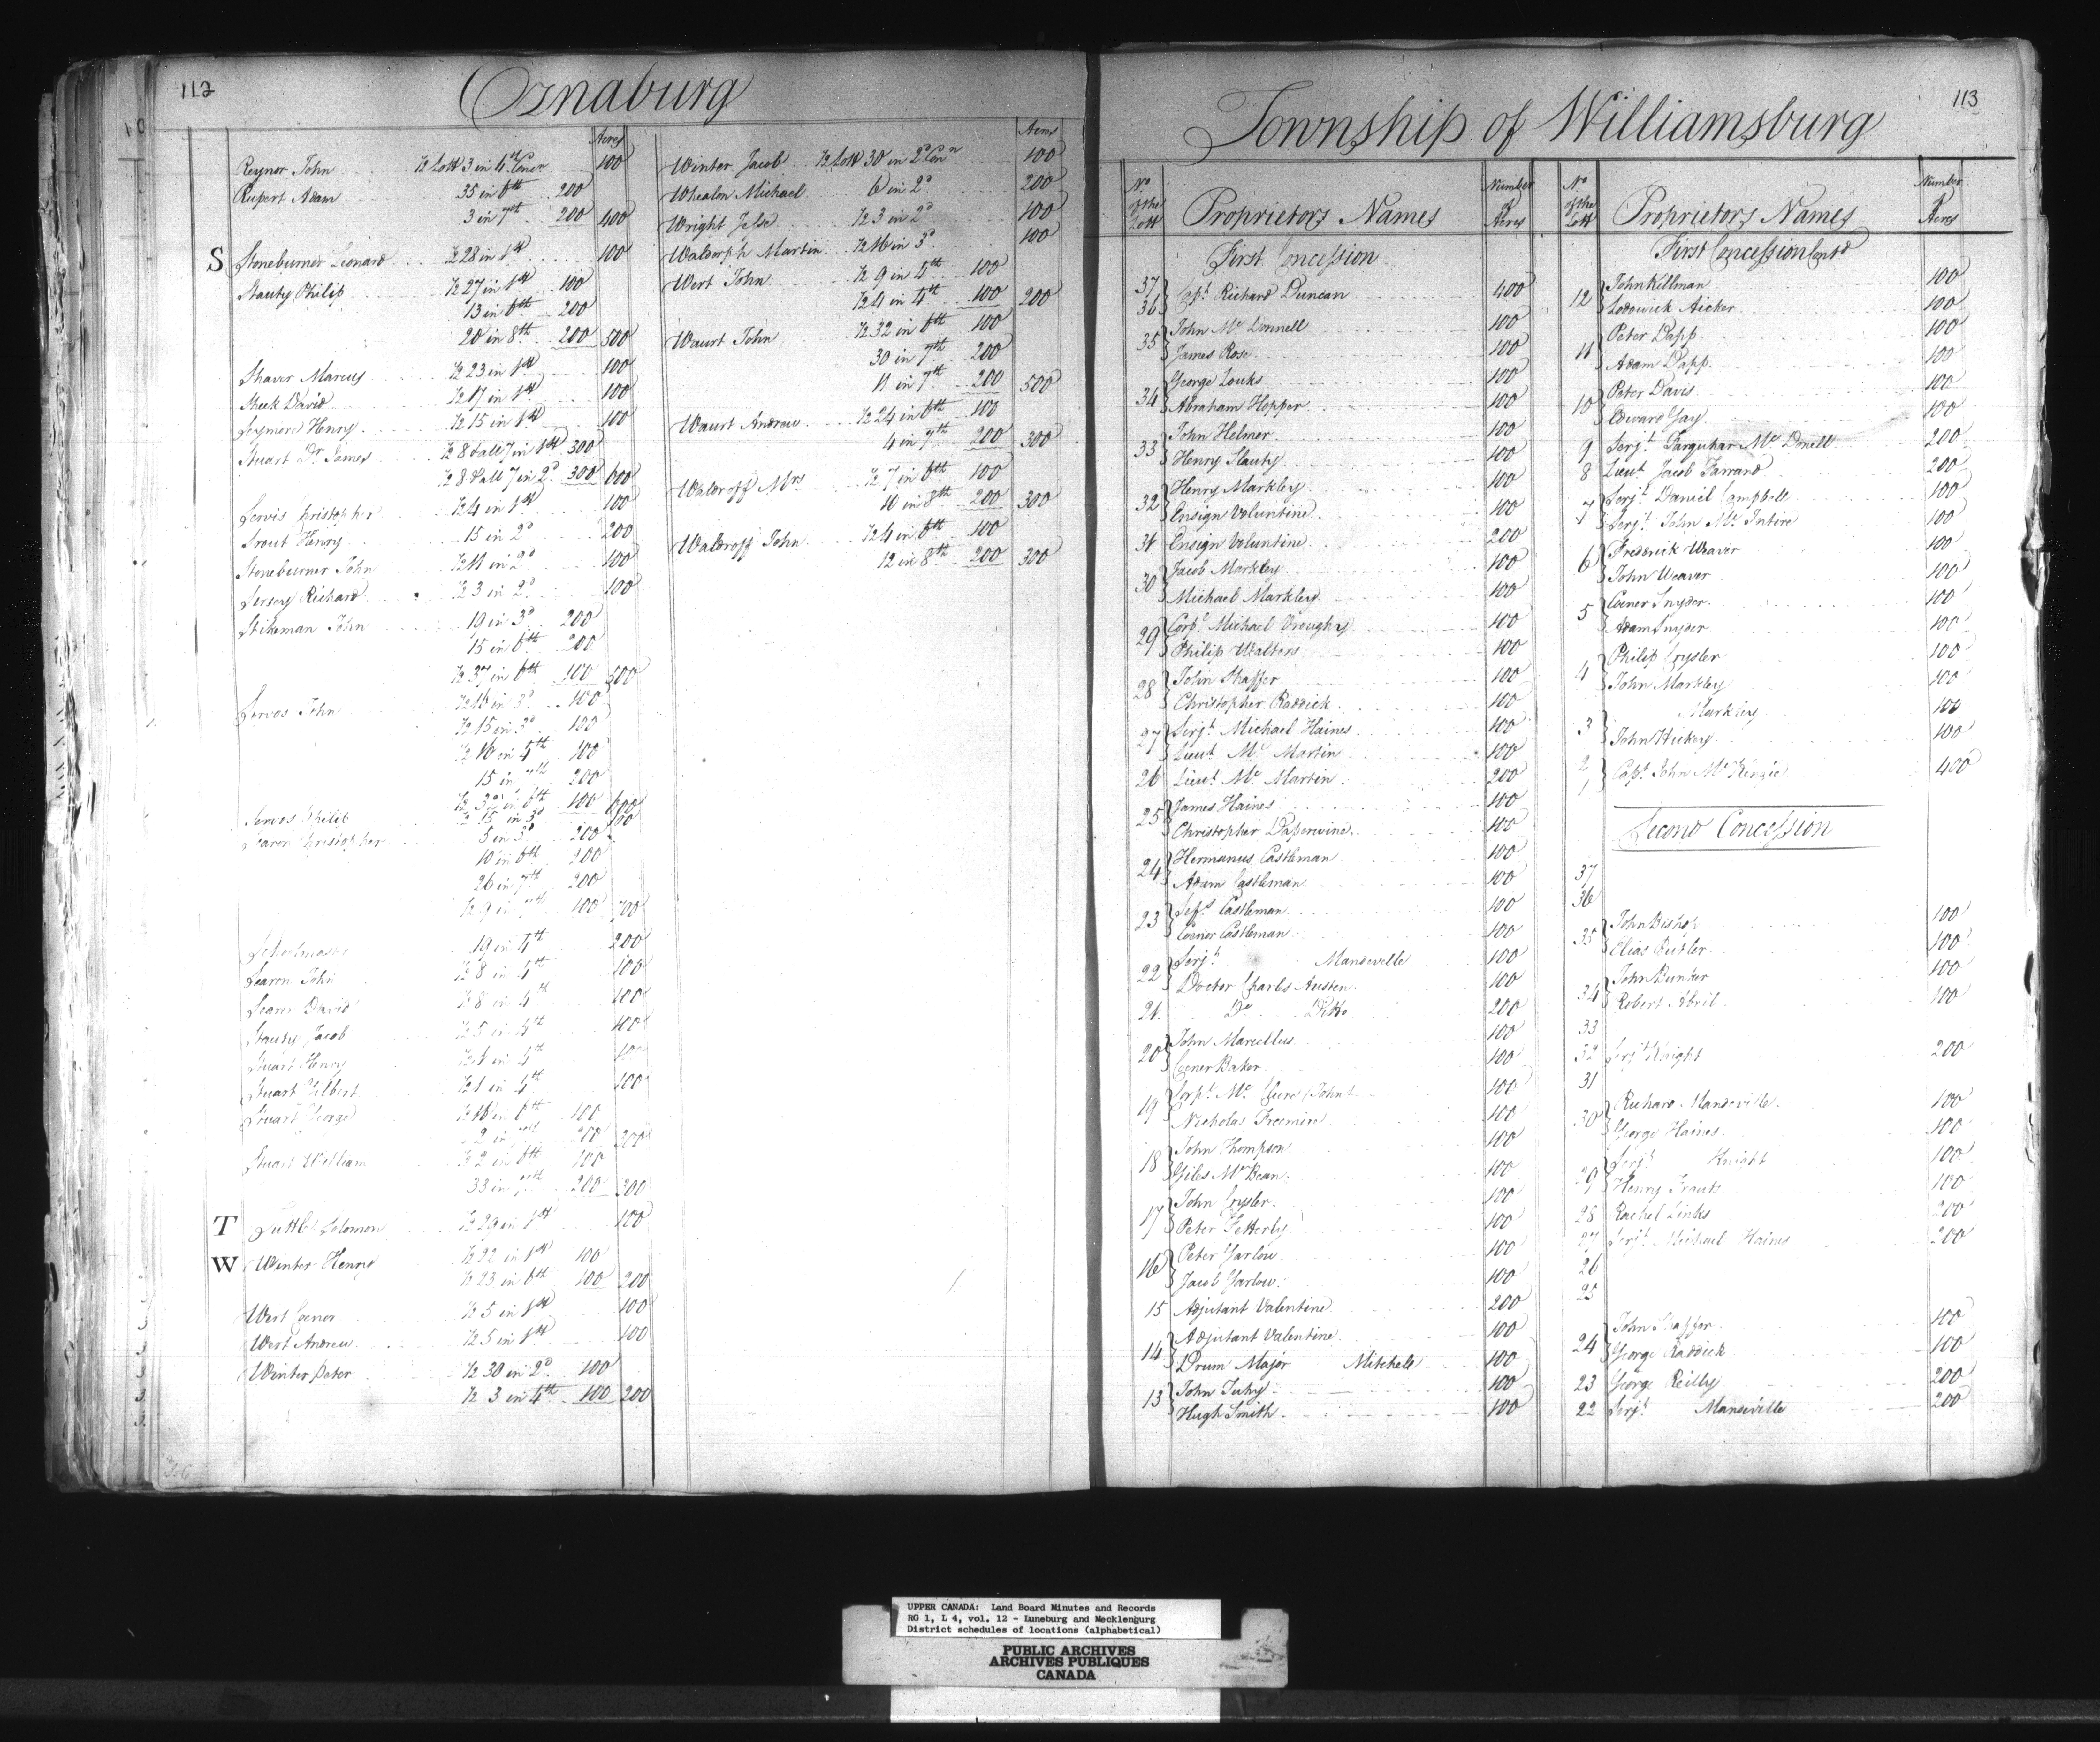 112
Oznaburg
Acres
Reynor John ½ Lott 3 in 4th Concn 100
Rupert Adam 35 in 6th 200
3 in 7th 200 400
S Stoneburner Leonard ½ 28 in 1st 100
Stauty Philip ½ 27 in 1st 100
13 in 6th 200
20 in 8th 200 500
Shaver Marcus ½ 23 in 1st 100
Sheek David ½ 17 in 1st 100
Seymore Henry ½ 15 in 1st 100
Stuart Dr James ½ 8 & all 7 in 1st 300
½ 8 & all 7 in 2d 300 600
Servis Christopher ½ 4 in 1st 100
Srout Henry 15 in 2d 200
Stoneburner John ½ 11 in 2d 100
Sersoy Richard ½ 3 in 2d 100
Stikeman John 19 in 3d 200
15 in 6th 200
½ 37 in 6th 100 500
Servos John ½ 16 in 3d 100
½ 15 in 3d 100
½ 10 in 4th 100
15 in 7th 200
½ 32 in 6th 100 600
Servos Philip ½ 15 in 3d 100
Searen Christopher 5 in 3d 200
10 in 6th 200
26 in 7th 200
½ 9 in 7th 100 700
19 in 4th 200
Searen John ½ 8 in 4th 100
Searen David ½ 8 in 4th 100
Stauty Jacob ½ 5 in 4th 100
Stuart Henry ½ 1 in 4th 100
Stuart Gilbert ½ 1 in 4th 100
Stuart George ½ 16 in 6th 100
2 in 7th 200 300
Stuart William ½ 2 in 6th 100
33 in 7th 200 300
T Tuttle Solomon ½ 29 in 1st 100
W Winter Henry ½ 22 in 1st 100
½ 23 in 6th 100 200
Wert Coenor ½ 5 in 1st 100
Wert Andrew ½ 5 in 1st 100
Winter Peter ½ 30 in 2d 100
½ 3 in 4th 100 200
Acres
Winter Jacob ½ Lott 30 in 2d Conn 100
Whealon Michael 6 in 2d 200
Wright Jesse ½ 3 in 2d 100
Waldorph Martin ½ 16 in 3d 100
Wert John ½ 9 in 4th 100
½ 4 in 4th 100 200
Waurt John ½ 32 in 6th 100
30 in 7th 200
11 in 7th 200 500
Waurt Andrew ½ 24 in 6th 100
4 in 7th 200 300
Waldroff Mrs ½ 7 in 6th 100
10 in 8th 200 300
Waldroff John ½ 4 in 6th 100
12 in 8th 200 300
113
Township of Williamsburg
No of the Lott Proprietors Names Number of Acres
First Concession
37
36 Capt Richard Duncan 400
35 John Mc Donnell 100
James Rose 100
34 George Louks 100
Abraham Hopper 100
33 John Helmer 100
Henry Stauty 100
32 Henry Markley 100
Ensign Voluntine 100
31 Ensign Voluntine 200
30 Jacob Markley 100
Michael Markley 100
29 Corpl Michael Vroughy 100
Philip Walters 100
28 John Shaffer 100
Christopher Raddick 100
27 Serjt Michael Haines 100
Lieut Mc Martin 100
26 Lieut Mc Martin 200
25 James Haines 100
Christopher Daperwine 100
24 Hermanus Castleman 100
Adam Castleman 100
23 Castleman 100
Coenor Castleman 100
22 Serjt Mandeville 100
Doctor Charles Austen 100
21 Do Ditto 200
20 John Marcellus 100
Coener Baker 100
19 Corpl Mc Cure (John) 100
Nicholas Freemire 100
18 John Thompson 100
Giles Mc Bean 100
17 John Crysler 100
Peter Fetterly 100
16 Peter Garlow 100
Jacob Garlow 100
15 Adjutant Valentine 200
14 Adjutant Valentine 100
Drum Major Mitchele 100
13 John Tuhy 100
Hugh Smith 100
No of the Lott Proprietors Names Number of Acres
First Concession Contd
12 John Killman 100
Lodowick Aicker 100
11 Peter Dapp 100
Adam Dapp 100
10 Peter Davis 100
Edward Gay 100
9 Serjt Farquhar Mc Donell 200
8 Lieut Jacob Farrand 200
7 Serjt Daniel Campbele 100
Serjt John Mc Intire 100
6 Frederick Weaver 100
John Weaver 100
5 Coener Snyder 100
Adam Snyder 100
4 Philip Crysler 100
John Markley 100
3 Markley 100
John Hickey 100
2
1 Capt John Mc Kenzie 400
Second Concession
37
36
35 John Bishop 100
Elias Butler 100
34 John Bunker 100
Robert Abril 100
33
32 Serjt Knight 200
31
30 Richard Mandeville 100
George Haines 100
29 Serjt Knight 100
Henry Frauts 100
28 Rachel Links 200
27 Serjt Michael Haines 200
26
25
24 John Shaffer 100
George Raddick 100
23 George Reilly 200
22 Serjt Mandeville 200
UPPER CANADA: Land Board Minutes and Records
RG 1, L 4, vol. 12 - Luneburg and Mecklenburg
District schedules of locations (alphabetical)
PUBLIC ARCHIVES
ARCHIVES PUBLIQUES
CANADA